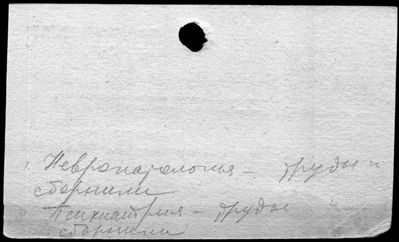 1. Невропатология – труды и
сборники
2. Психиатрия – труды и
сборники